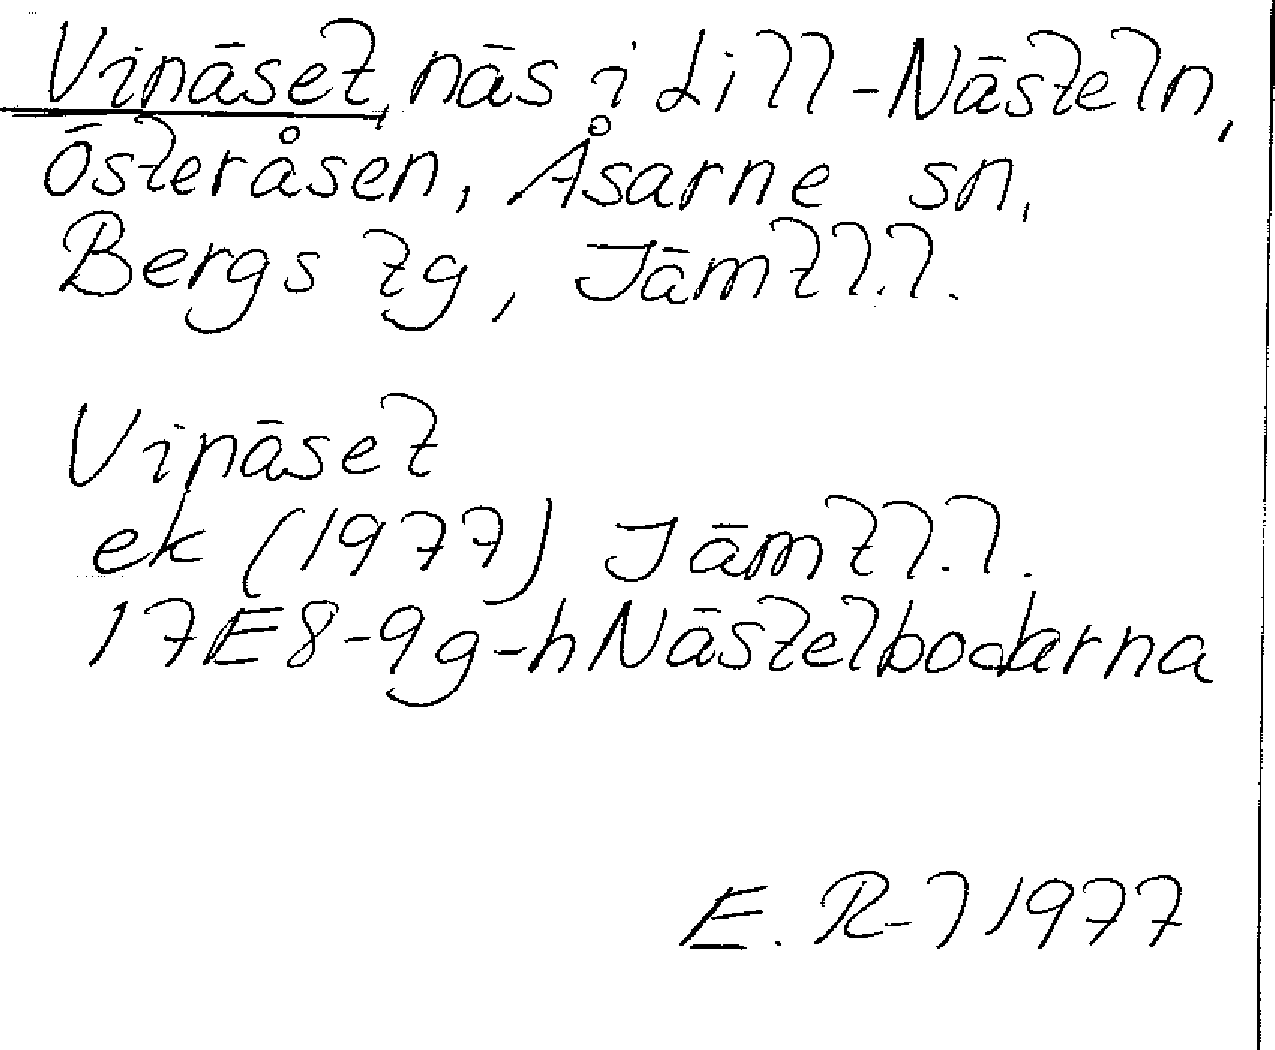 Vinäset, näs i Lill-Nästeln,
Österåsen, Åsarne sn,
Bergs tg, Jämtl.l.
Vinäset
ek (1977) Jämtl.l.
17E8-9g-h Nästelbodarna
E. R-l 1977